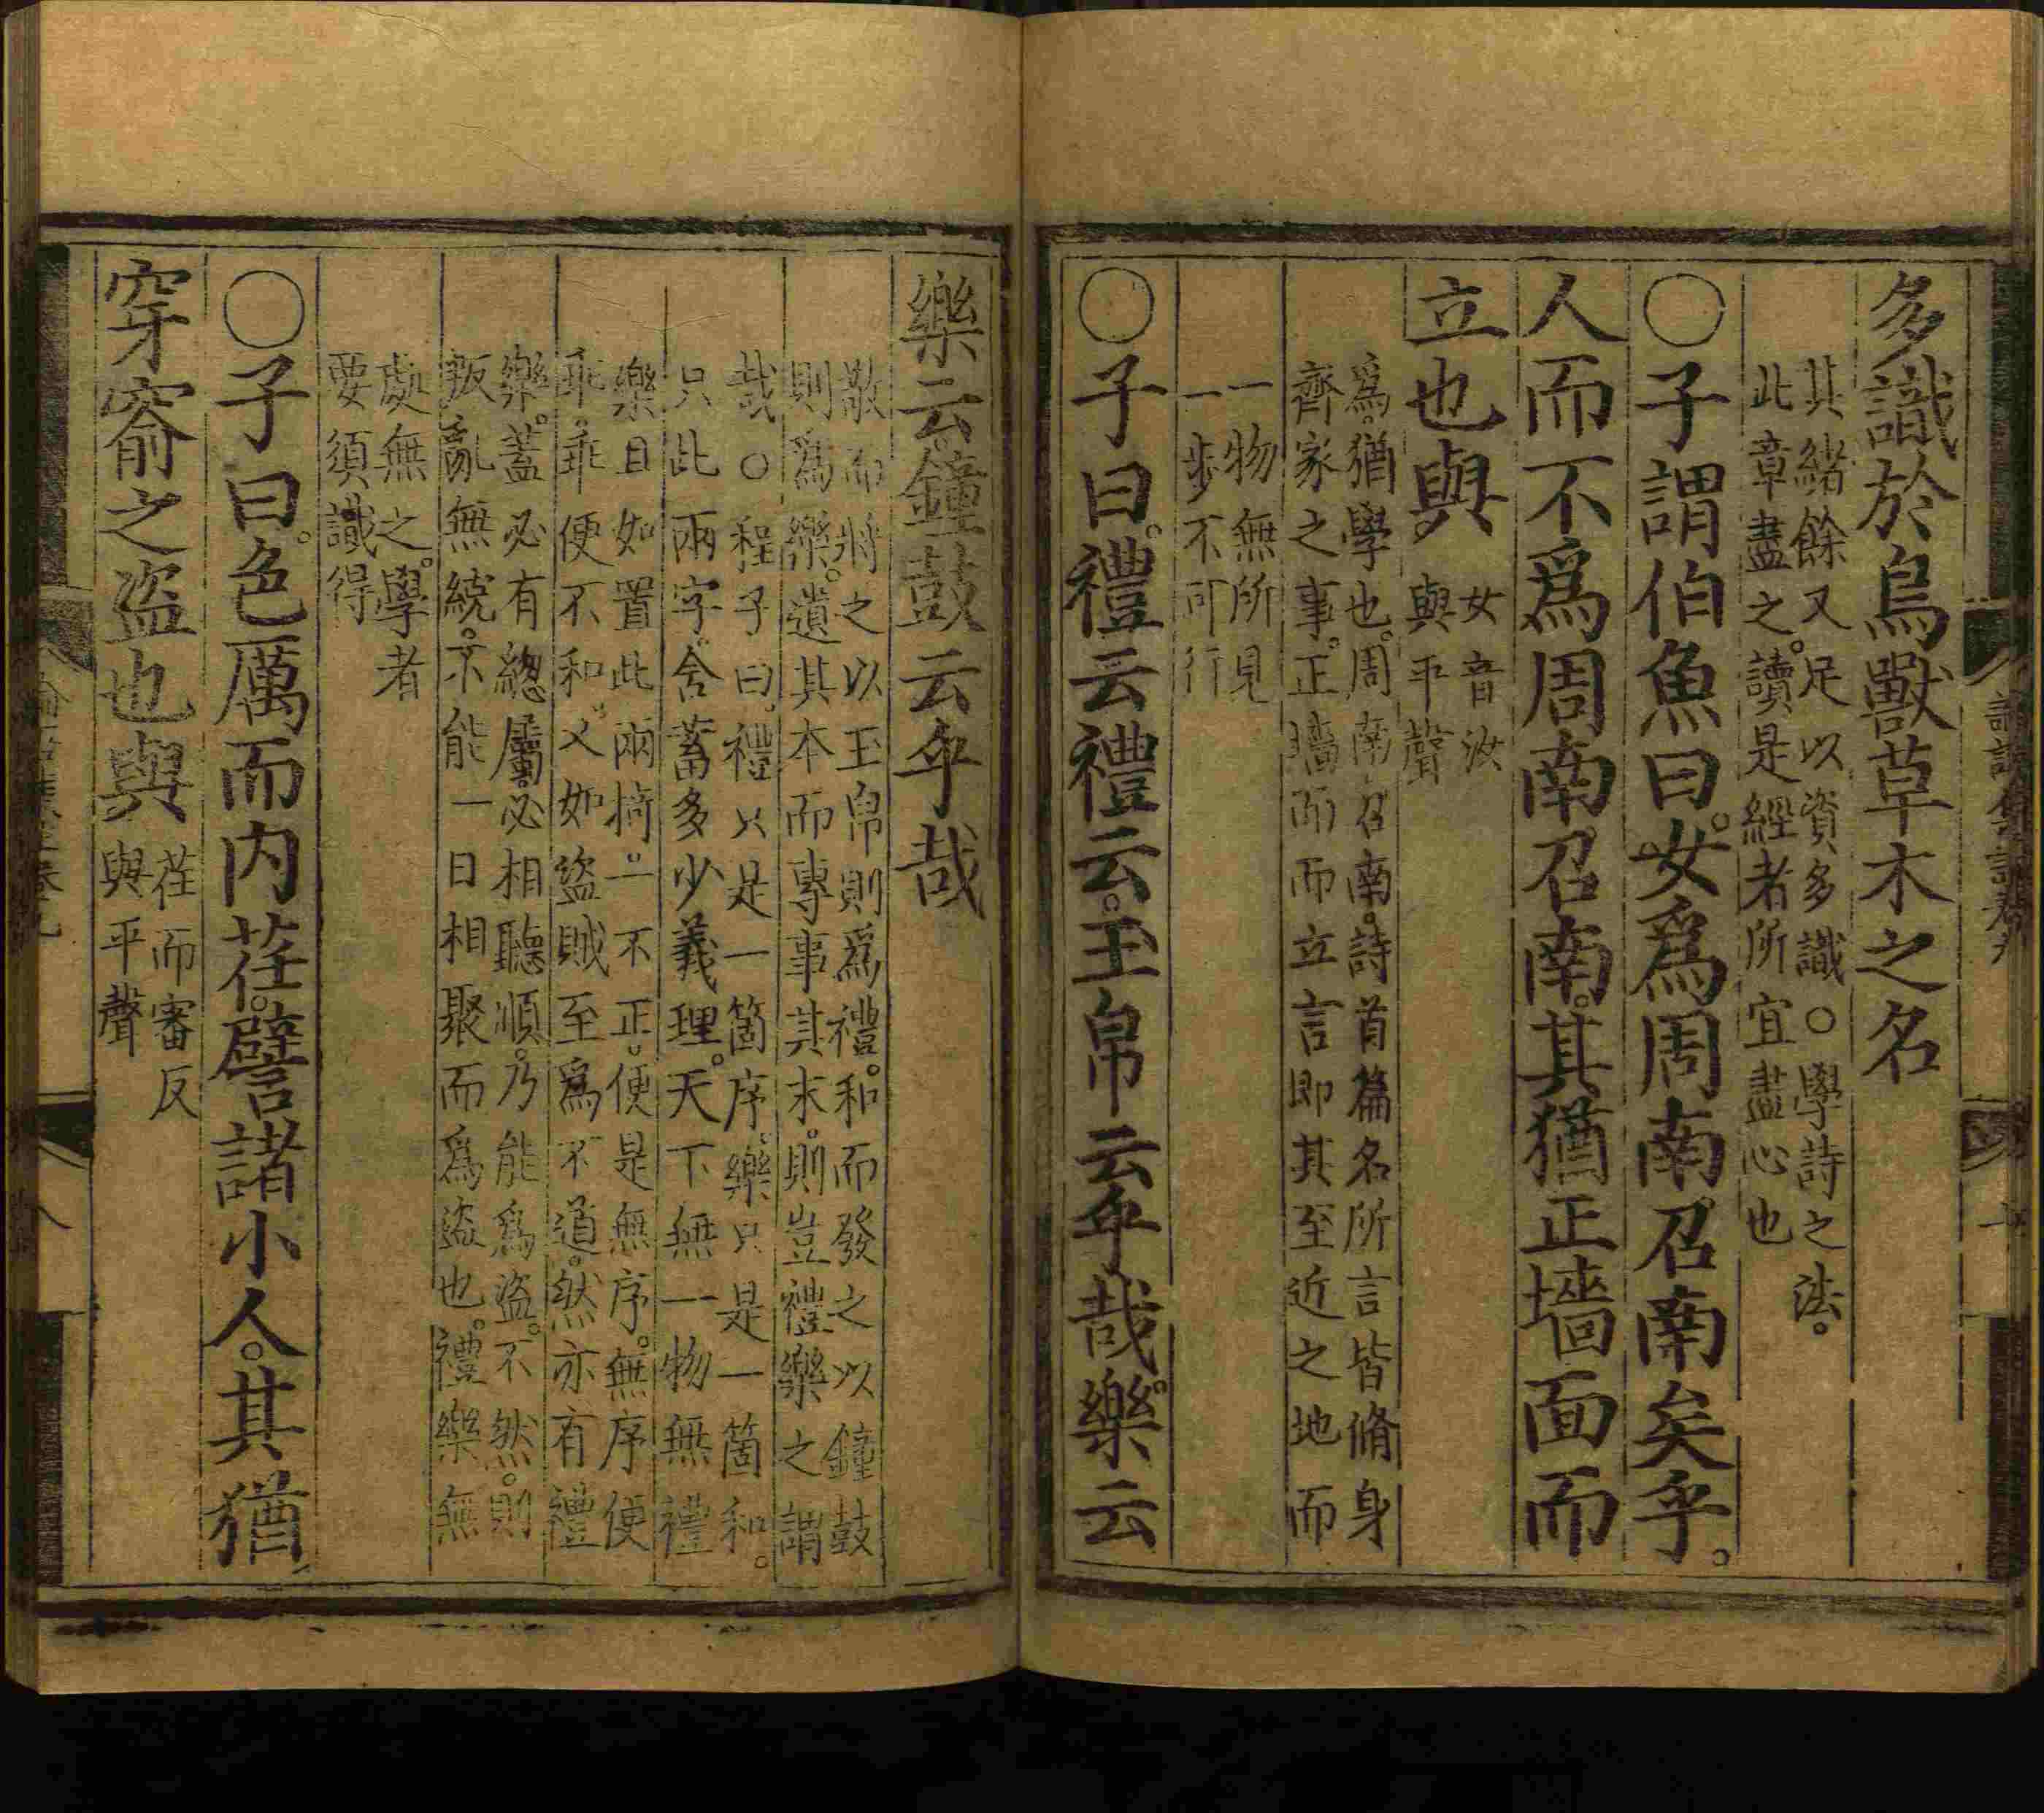 多識於鳥獸草木之名
其緒餘又足以資多識○學詩之法。
此章盡之。讀是經者所宜盡心也
○子謂伯魚曰。女爲周南召南矣乎。
人而不爲周南召南。其猶正墻面而
立也與
女音汝
與平聲
爲。猶學也。周南召南。詩首篇名所言皆脩身
齊家之事。正墻面而立言即其至近之地而
一物無所見
一步不可行
○子曰。禮云禮云。玉帛云乎哉。樂云
樂云。鐘鼓云乎哉
敬而將之以玉帛則爲禮。和而發之以鐘鼓
則爲樂。遺其本而專事其末。則豈禮樂之謂
哉○程子曰。禮只是一箇序。樂只是一箇和。
只此兩字。含蓄多少義理。天下無一物無禮
樂且如置此兩椅。一不正。便是無序。無序便
乖。乖便不和。又如盜賊至爲不道。然亦有禮
樂。蓋必有緫屬。必相聽順。乃能爲盜。不然。則
叛亂無統。不能一日相聚而爲盜也。禮樂無
處無之。學者
要須識得
○子曰。色厲而内荏。譬諸小人。其猶
穿窬之盜也與
荏而審反
與平聲